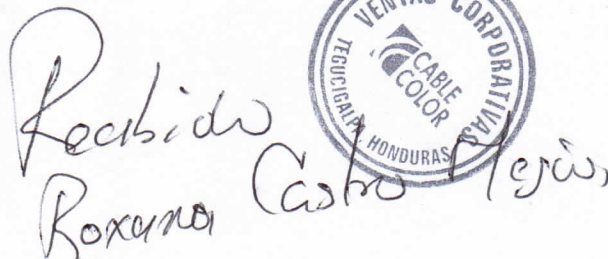 VENTAS CORPORATIVAS
CABLE
COLOR
TEGUCIGALPA HONDURAS
Recibido
Roxana Castro Mejía